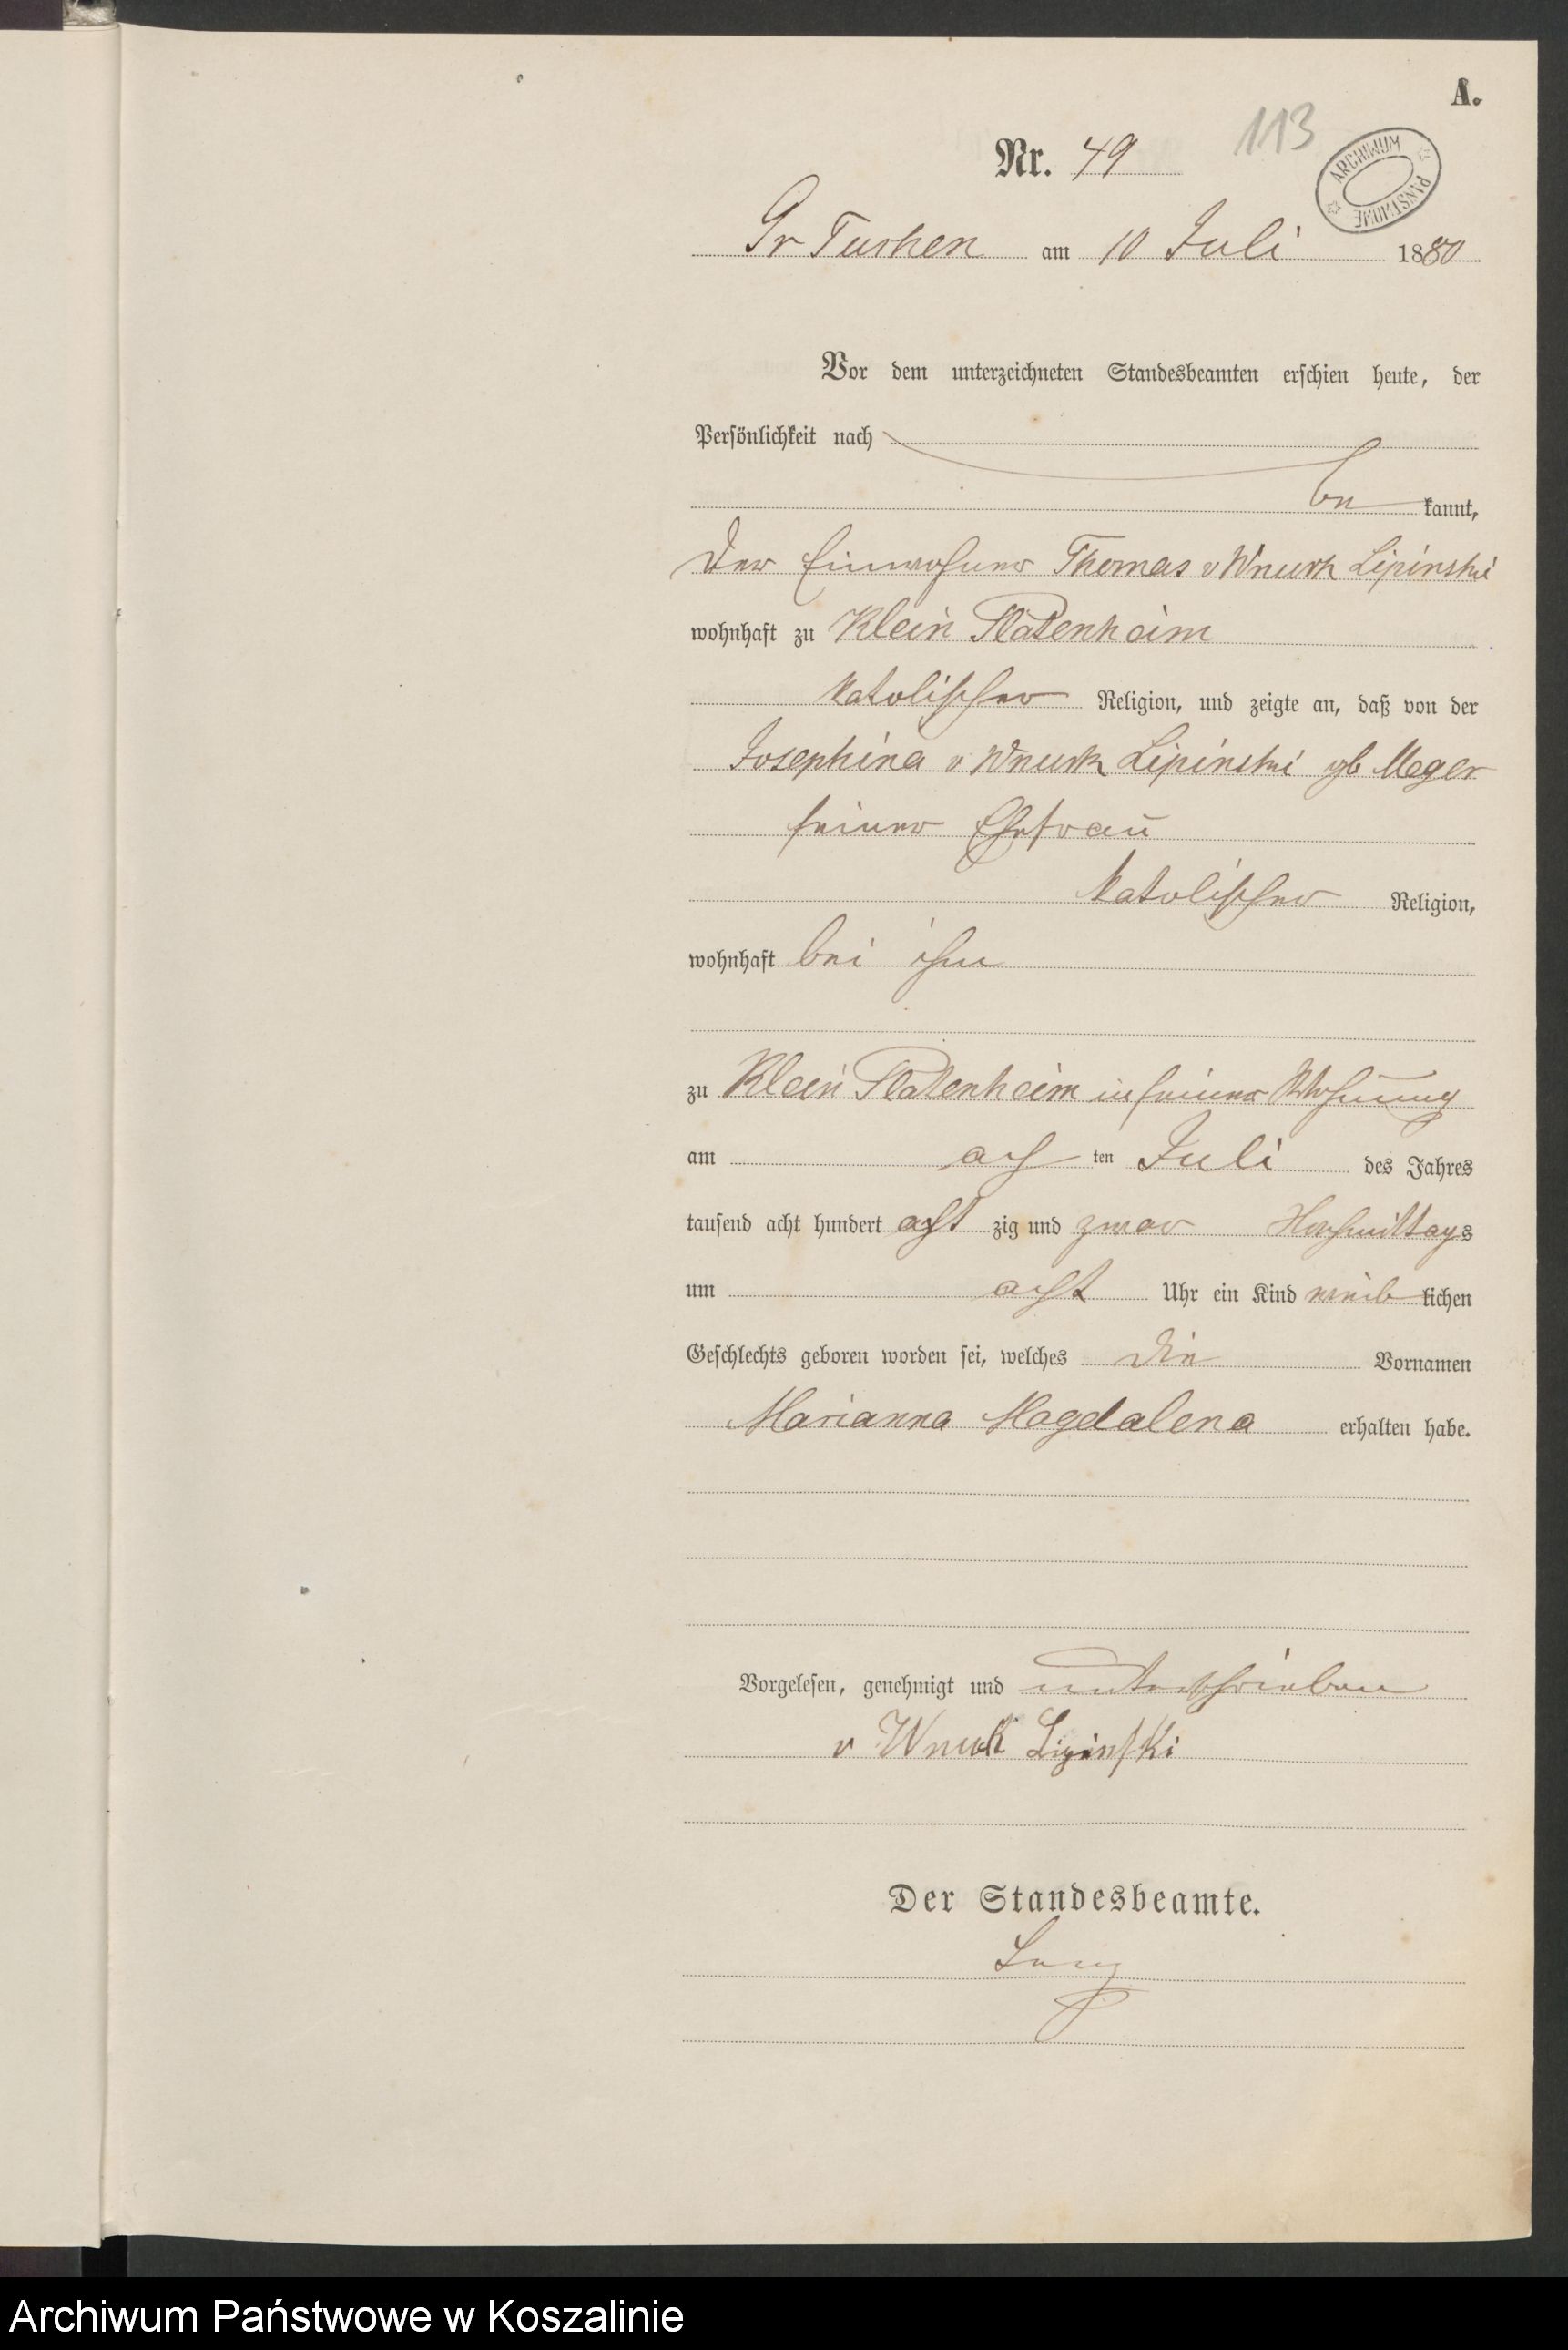 A.
113
Nr. 49
ARCHIWUM PAŃSTWOWE
Gr Tuchen am 10 Juli 1880
Vor dem unterzeichneten Standesbeamten erschien heute, der
Persönlichkeit nach
be kannt,
der Einwohner Thomas v Wnuck Lipinski
wohnhaft zu Klein Platenheim
katolischer Religion, und zeigte an, daß von der
Josephina v Wnuck Lipinski gb Meger
seiner Ehefrau
katolischer Religion,
wohnhaft bei ihm
zu Klein Platenheim in seiner Wohnung
am ach ten Juli des Jahres
tausend acht hundert acht zig und zwar Nachmittags
um acht Uhr ein Kind weib lichen
Geschlechts geboren worden sei, welches die Vornamen
Marianna Magdalena erhalten habe.
Vorgelesen, genehmigt und unterschrieben
v Wnuck Lipinski
Der Standesbeamte.
Archiwum Państwowe w Koszalinie